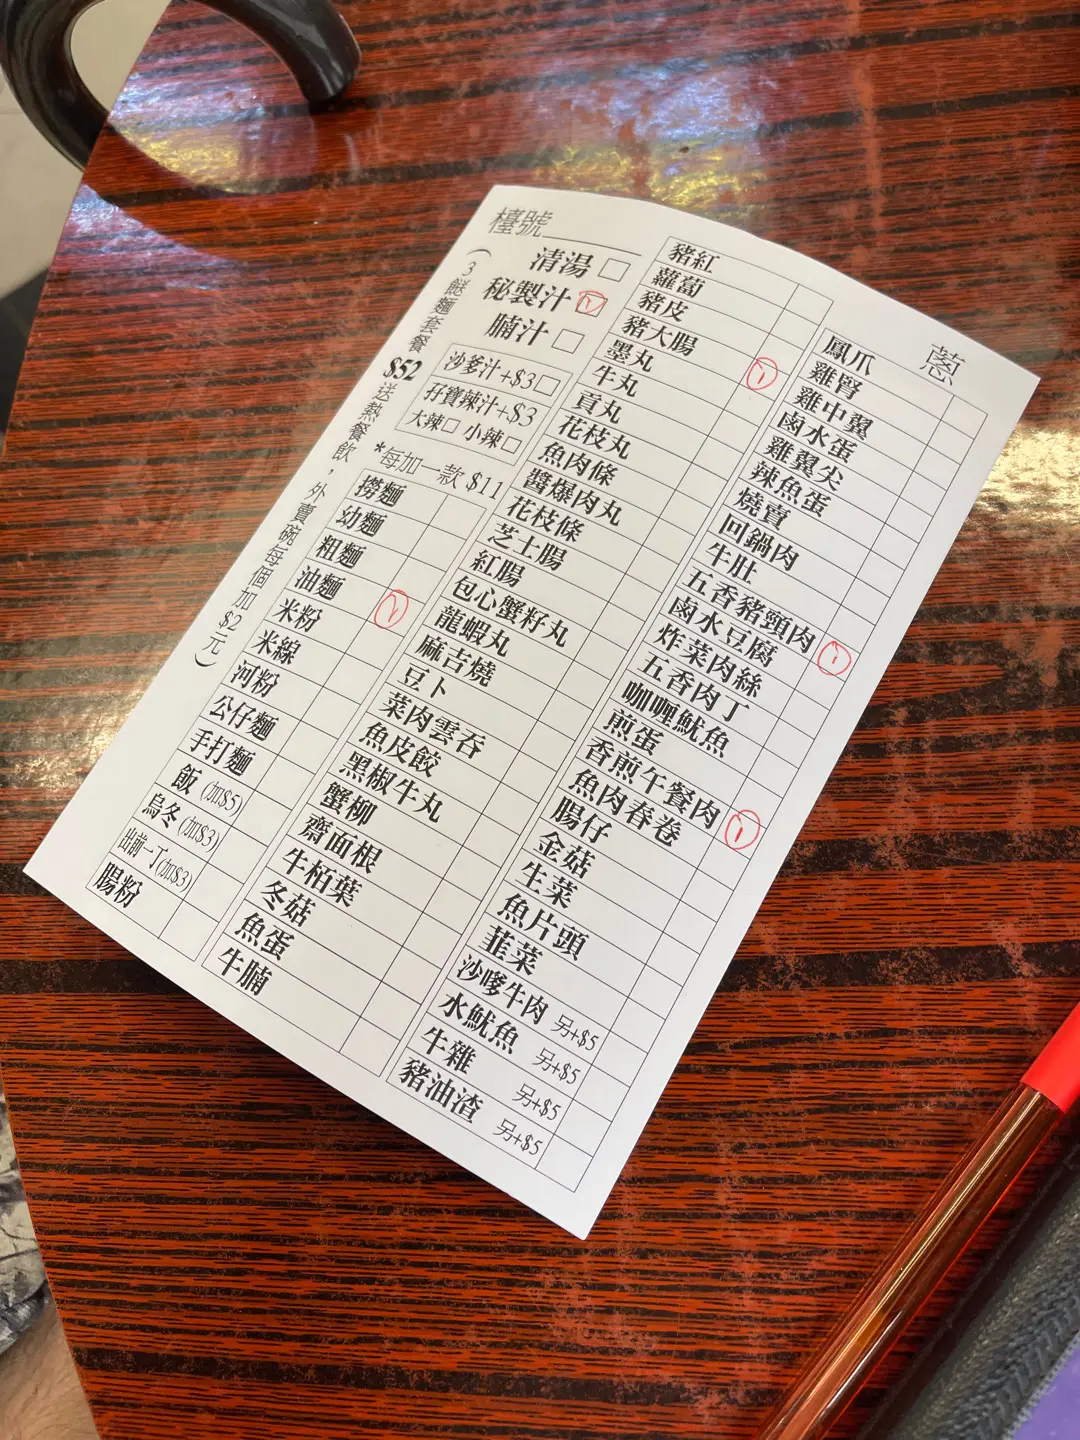 檯號
清湯 □
秘製汁 ☑
腩汁 □
沙爹汁+$3 □
孖寶辣汁+$3
大辣□ 小辣□
*每加一款 $11
(3餸麵套餐 $52 送熱餐飲，外賣碗每個加$2元)
撈麵
幼麵
粗麵
油麵
米粉
米線
河粉
公仔麵
手打麵
飯 (加$5)
烏冬 (加$3)
出前一丁 (加$3)
腸粉
豬紅
蘿蔔
豬皮
豬大腸
墨丸
牛丸
貢丸
花枝丸
魚肉條
醬爆肉丸
花枝條
芝士腸
紅腸
包心蟹籽丸
龍蝦丸
麻吉燒
豆卜
菜肉雲吞
魚皮餃
黑椒牛丸
蟹柳
齋面根
牛栢葉
冬菇
魚蛋
牛腩
蔥
鳳爪
雞腎
雞中翼
鹵水蛋
雞翼尖
辣魚蛋
燒賣
回鍋肉
牛肚
五香豬頸肉
鹵水豆腐
炸菜肉絲
五香肉丁
咖喱魷魚
煎蛋
香煎午餐肉
魚肉春卷
腸仔
金菇
生菜
魚片頭
韮菜
沙嗲牛肉 另+$5
水魷魚 另+$5
牛雜 另+$5
豬油渣 另+$5